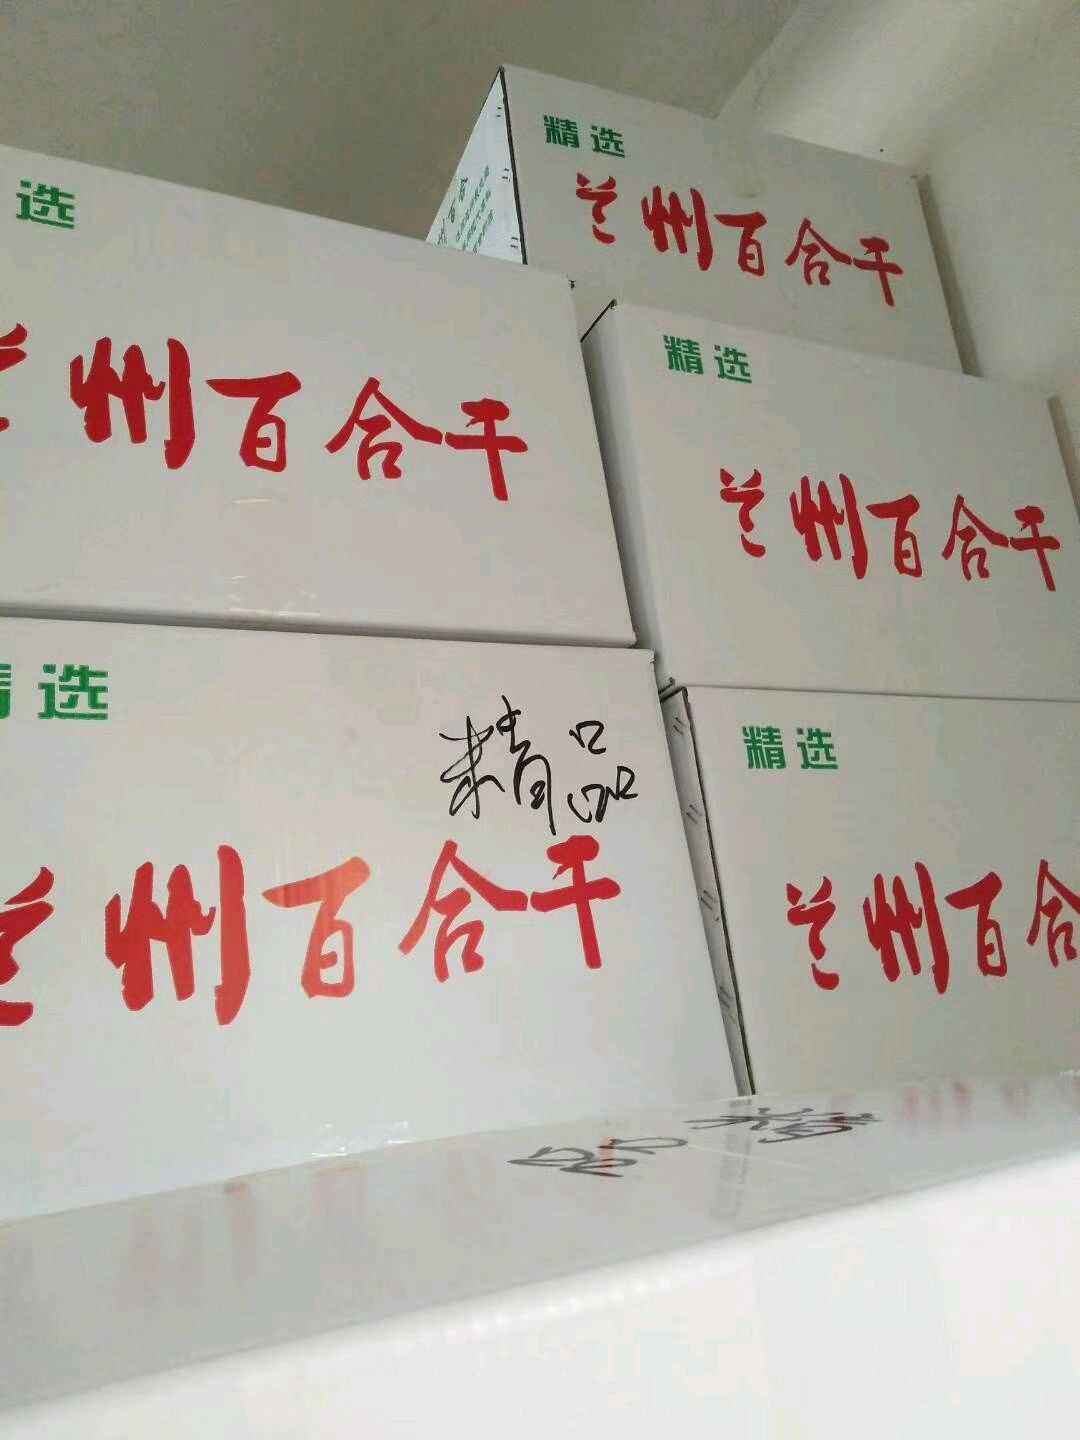 精选
兰州百合干
选
州百合干
精选
兰州百合干
选
精品
兰州百合干
精选
兰州百合